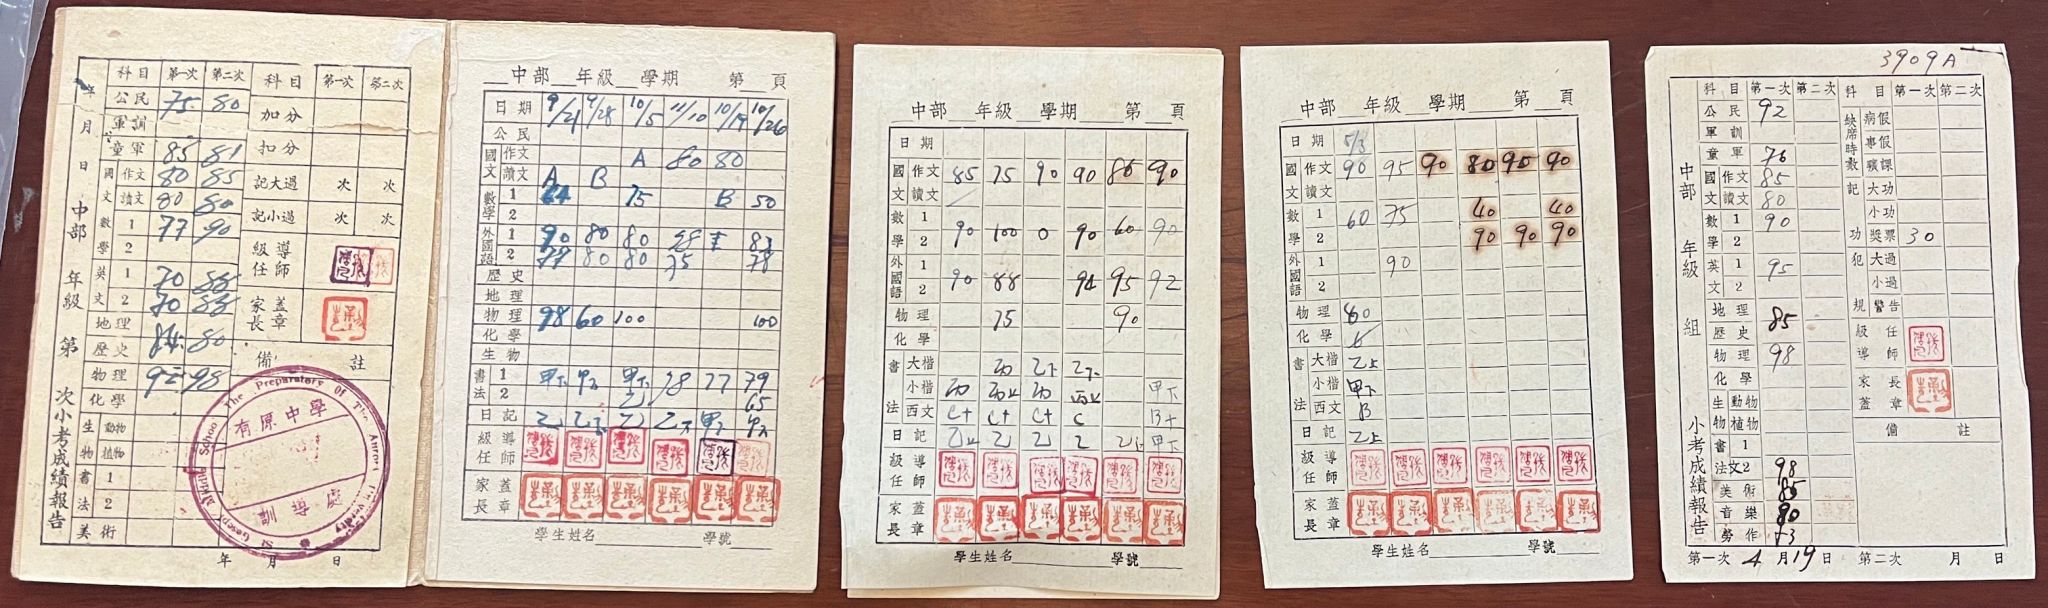 科目 第一次 第二次 科目 第一次 第二次
公民 75 80 加分
軍訓
童軍 85 81 扣分
國文 作文 80 85 記大過 次 次
讀文 80 80 記小過 次 次
數學 1 77 90
2 級任導師
英文 1 70 88
2 70 88 家長蓋章
地理 84 80
歷史 備註
物理 92 98
化學
生物 動物
植物
書法 1
2
美術
年 月 日
年 月 日 中部 年級 第 次小考成績報告
有原中學
訓導處
中部 年級 學期 第 頁
日期 9/21 9/28 10/5 11/10 10/19 10/26
公民
國文 作文 A 80 80
讀文 A B
數學 1 64 75 B 50
2
外國語 1 90 80 80
2 80 80 75 78
歷史
地理
物理 98 60 100 100
化學
生物
書法 1 甲下 甲下 78 77 79
2 乙 65
日記 乙 乙下 乙 乙下
級任導師
家長蓋章
學生姓名 學號
中部 年級 學期 第 頁
日期
國文 作文 85 75 90 90 86 90
讀文
數學 1
2 90 100 0 90 60 90
外國語 1
2 90 88 94 95 92
物理 75 90
化學
書法 大楷 丙 乙下 乙下
小楷 丙 丙 甲下
西文 C+ C+ C+ C B+
日記 乙 乙 乙上 甲下
級任導師
家長蓋章
學生姓名 學號
中部 年級 學期 第 頁
日期 5/3
國文 作文 90 95 90 80 95 90
讀文
數學 1 60 75 40 40
2 90 90 90
外國語 1 90
2
物理 80
化學
書法 大楷 乙上
小楷 甲下
西文 B
日記 乙上
級任導師
家長蓋章
學生姓名 學號
3909A
科目 第一次 第二次 科目 第一次 第二次
公民 92 缺席時數 病假
軍訓 事假
童軍 76 曠課
國文 作文 85 記功 大功
讀文 80 小功
數學 1 90 獎票 30
2 犯規 大過
英文 1 95 小過
2 警告
地理
歷史 85 級任導師
物理 98
化學 家長蓋章
生物 動物
植物 備註
書法 1
文2 98
美術 85
音樂 80
勞作 73
第一次 4月19日 第二次 月 日
中部 年級 組 小考成績報告